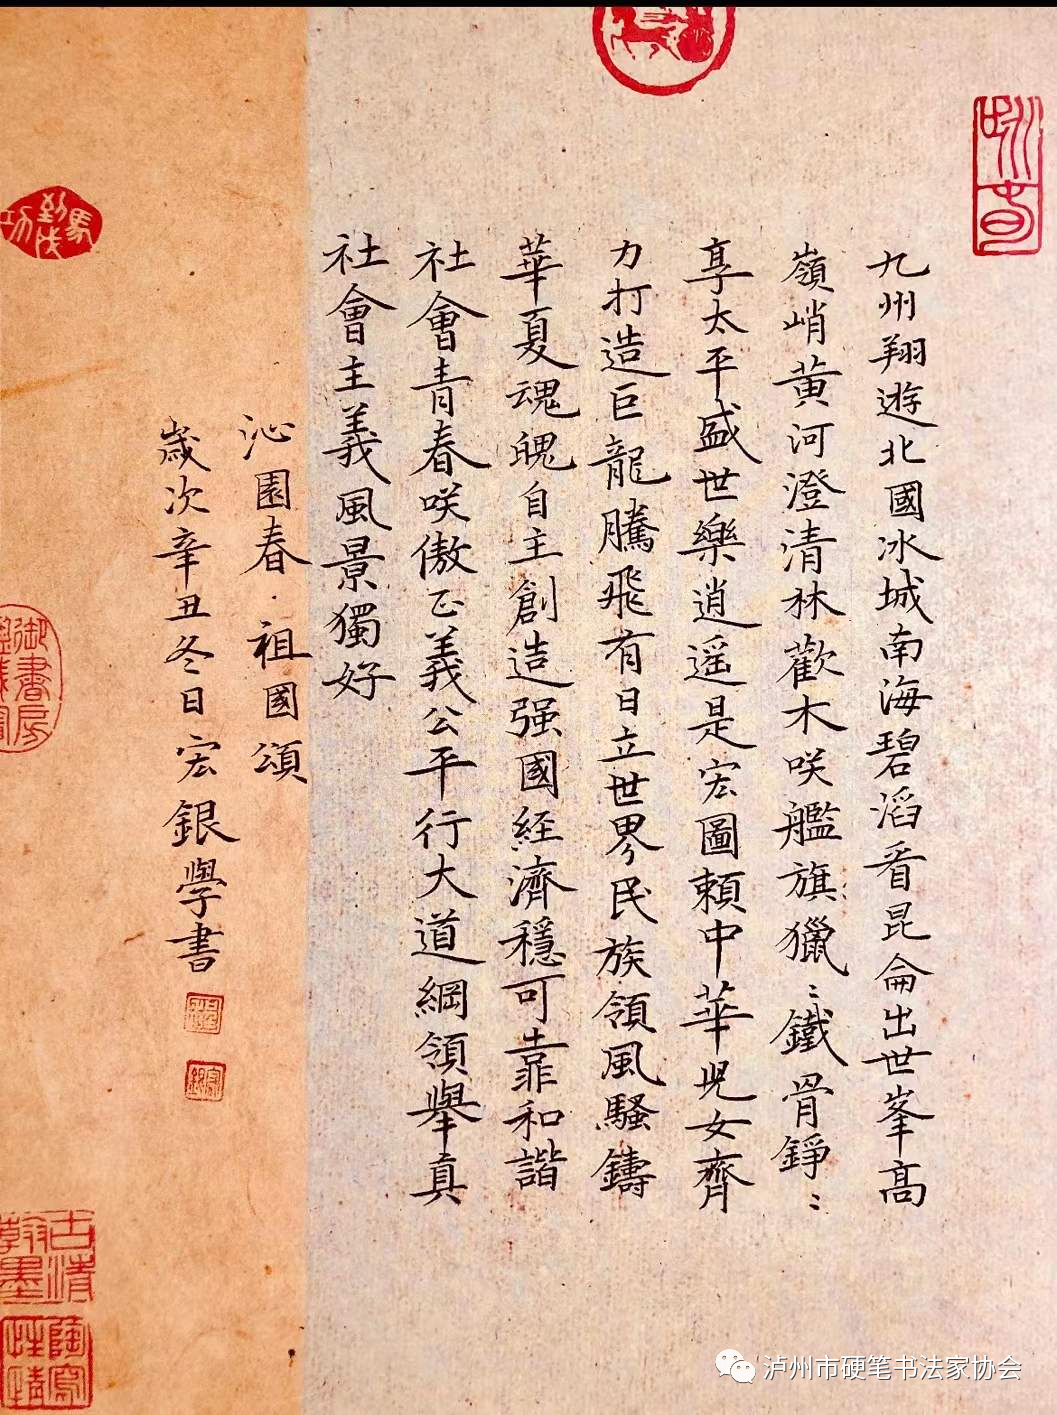 九州翔遊北國冰城南海碧滔看昆侖出世峯高
嶺峭黃河澄清林歡木咲艦旗獵〻鐵骨錚〻
享太平盛世樂逍遥是宏圖頼中華児女齊
力打造巨龍騰飛有日立世界民族領風騷鑄
華夏魂魄自主創造强國経濟穩可靠和諧
社會青春咲傲正義公平行大道綱領舉真
社會主義風景獨好
沁園春·祖國頌
歲次辛丑冬日宏銀學書
馬到成功
御書房
古清
翰墨
陶寫
性情
泸州市硬笔书法家协会